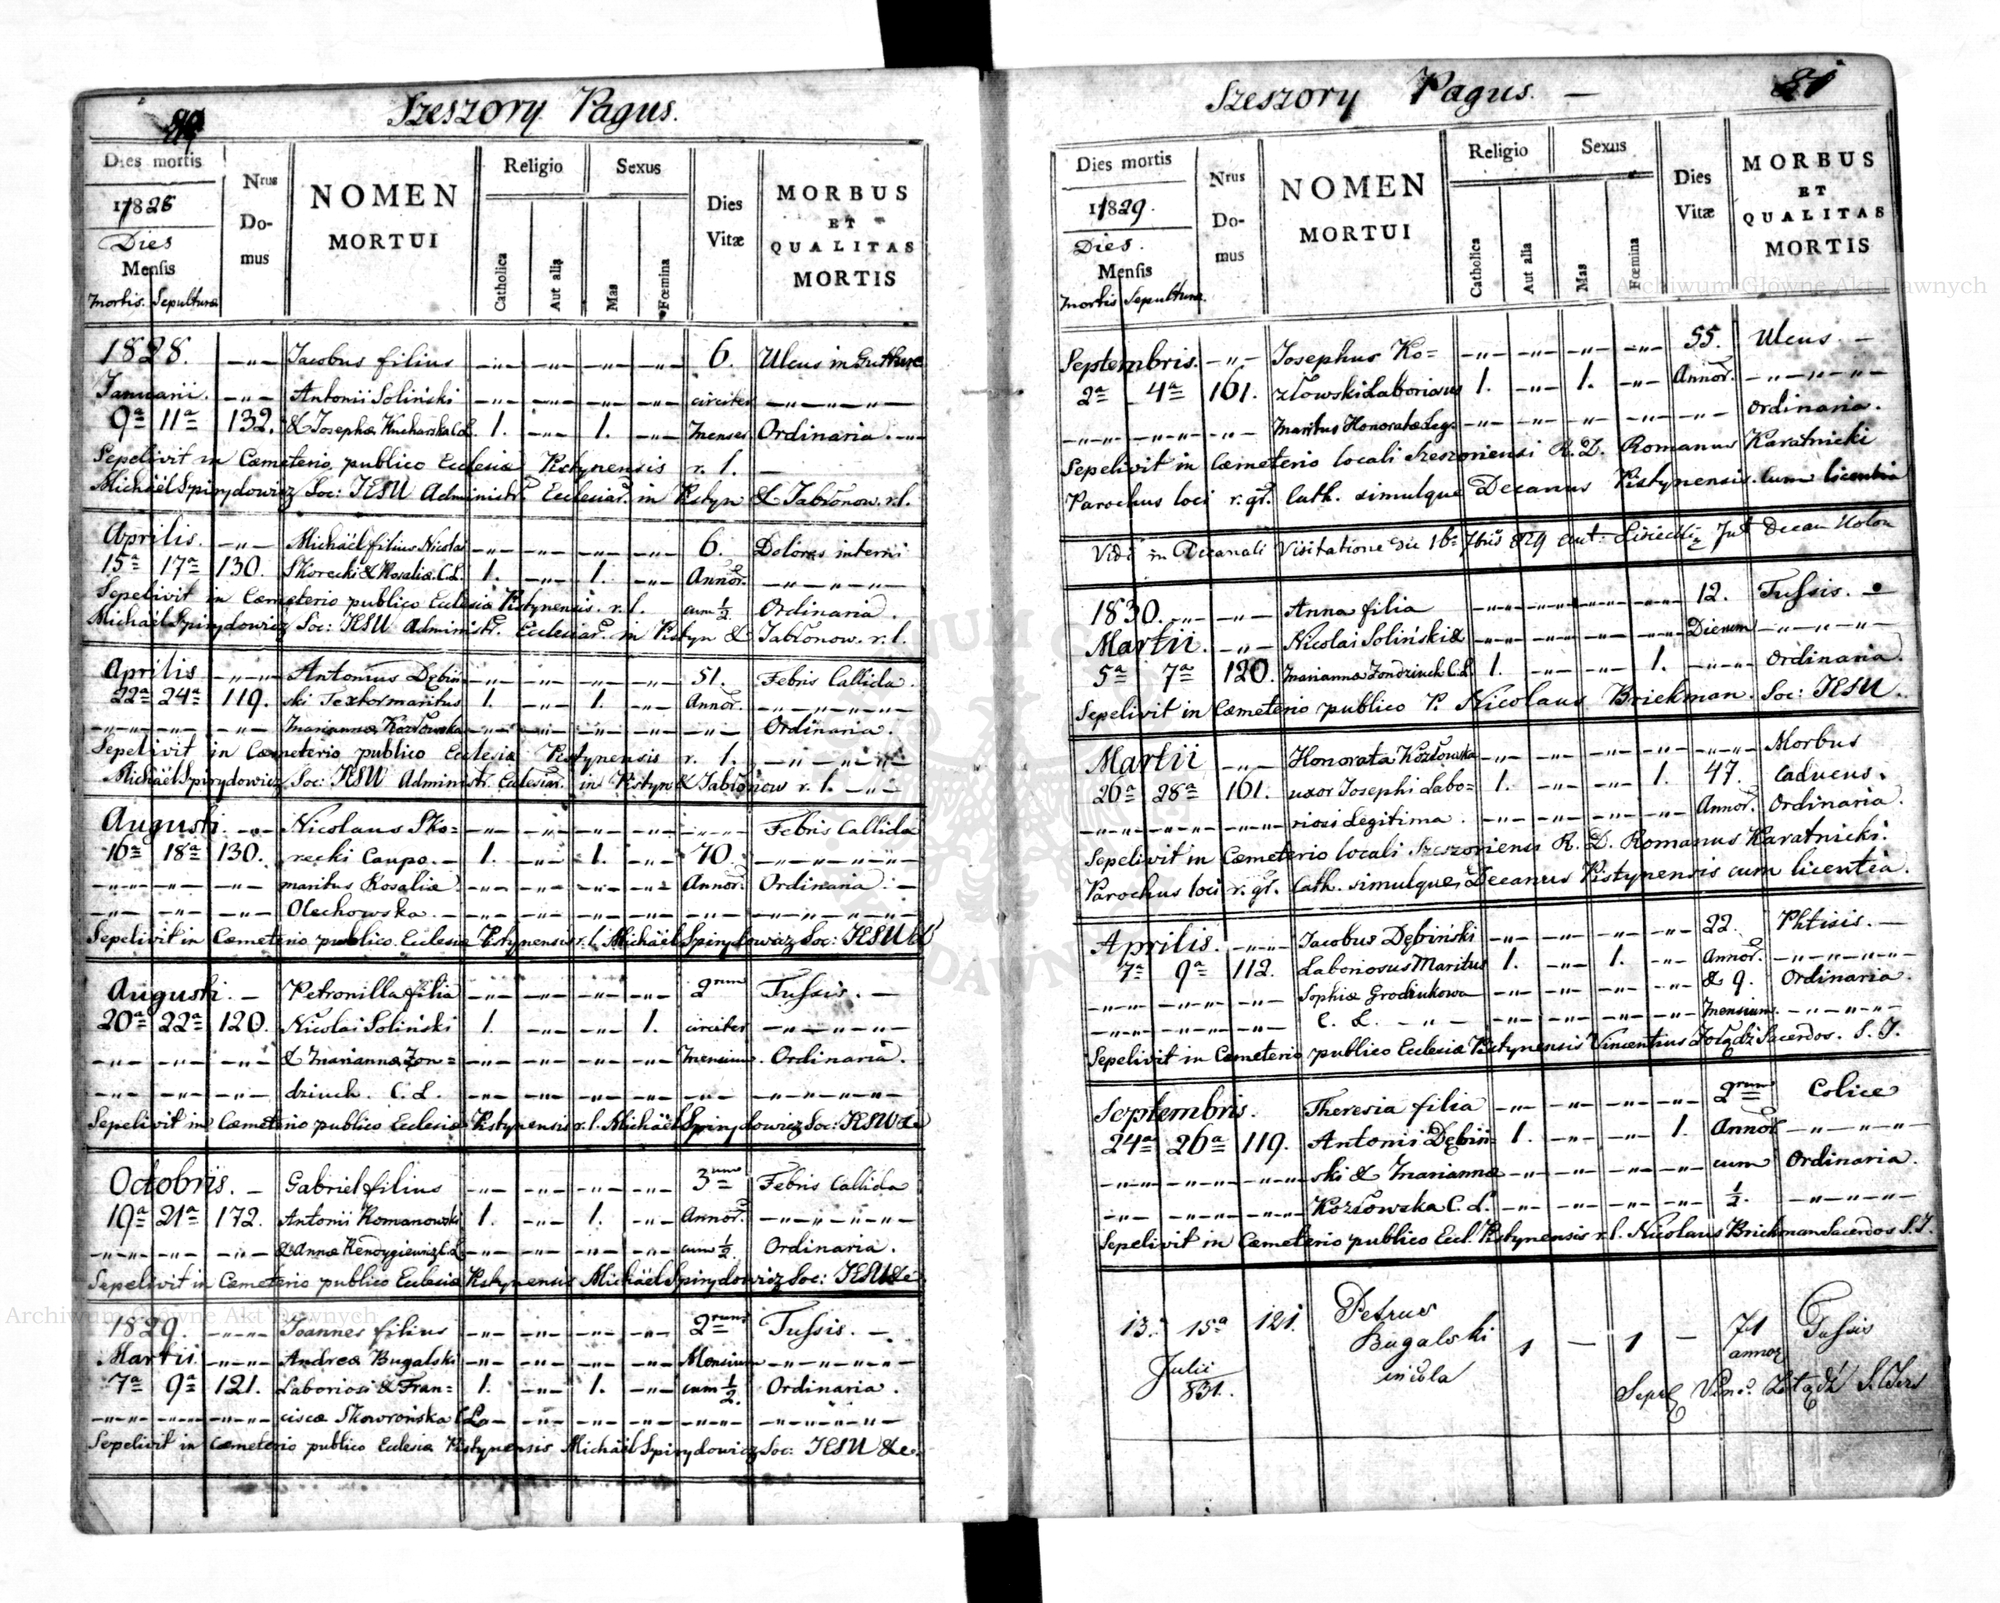 Szeszory Pagus.
Dies mortis
Nrus Domus
NOMEN MORTUI
Religio
Sexus
Dies Vitæ
MORBUS ET QUALITAS MORTIS
1828
Dies
Mensis
mortis. Sepulturæ
Catholica
Aut alia
Mas
Fœmina
1828. Jacobus filius 6. Ulcus in Gutture
Januarii. Antonii Soliński circiter
9ª 11ª 132. & Josephæ Kucharska C.L. 1. 1. menses Ordinaria.
Sepelivit in Cæmeterio publico Ecclesiæ Kstynensis r. l.
Michaël Spirydowicz Soc: JESU Administr. Ecclesiar. in Kstyn & Jabłonow. r. l.
Aprilis. Michaël filius Nicolai 6. Dolores interni
15ª 17ª 130. Skorecki & Rosaliæ C.L. 1. 1. Annor.
Sepelivit in Cæmeterio publico Ecclesiæ Kstynensis. r. l. cum ½ Ordinaria.
Michaël Spirydowicz Soc: JESU Administr. Ecclesiar. in Kstyn & Jabłonow. r. l.
Aprilis Antonius Dębin 51. Febris Callida.
22ª 24ª 119. ski Textor maritus 1. 1. Annor.
Mariannæ Kozłowska Ordinaria.
Sepelivit in Cæmeterio publico Ecclesiæ Kstynensis r. l.
Michaël Spirydowicz Soc: JESU Administr. Ecclesiar. in Kstyn & Jabłonow r. l.
Augusti. Nicolaus Sko= Febris Callida
16ª 18ª 130. recki Caupo. 1. 1. 70.
maritus Rosaliæ Annor. Ordinaria.
Olechowska.
Sepelivit in Cæmeterio publico Ecclesiæ Kstynensis r. l. Michaël Spirydowicz Soc: JESU &
Augusti. Petronilla filia 2rum Tussis.
20ª 22ª 120. Nicolai Soliński 1. 1. circiter
& Mariannæ Zon= Mensium. Ordinaria.
dziuch. C. L.
Sepelivit in Cæmeterio publico Ecclesiæ Kstynensis r. l. Michaël Spirydowicz Soc: JESU &c
Octobris. Gabriel filius 3um Febris Callida
19ª 21ª 172. Antonii Romanowski 1. 1. Annor.
& Annæ C.L. cum ½. Ordinaria.
Sepelivit in Cæmeterio publico Ecclesiæ Kstynensis Michaël Spirydowicz Soc: JESU &c
1829. Joannes filius 2rum Tussis.
Martii. Andreæ Bugalski Mensium
7ª 9ª 121. Laboriosi & Fran= 1. 1. cum ½. Ordinaria.
ciscæ Skowrońska C.L.
Sepelivit in Cæmeterio publico Ecclesiæ Kstynensis Michaël Spirydowicz Soc: JESU &c.
Szeszory Pagus. 81
Dies mortis
Nrus Domus
NOMEN MORTUI
Religio
Sexus
Dies Vitæ
MORBUS ET QUALITAS MORTIS
1829.
Dies.
Mensis
mortis Sepulturæ.
Catholica
Aut alia
Mas
Fœmina
Septembris. Josephus Ko= 55. Ulcus.
2ª 4ª 161. złowski Laboriosus 1. 1. Annor.
Maritus Honoratæ Leg. Ordinaria.
Sepelivit in Cæmeterio locali Szeszoriensi R. D. Romanus Karatnicki
Parochus loci r. gr. Cath. simulque Decanus Pistynensis. cum licentia
Vidi in Decanali Visitatione die 16ª 7bris 829
1830. Anna filia 12. Tussis.
Martii. Nicolai Soliński & Dierum
5ª 7ª 120. Mariannæ Zondziuch C.L. 1. 1. Ordinaria.
Sepelivit in Cæmeterio publico P. Nicolaus Brickman. Soc: JESU.
Martii Honorata Kozłowska Morbus
26ª 28ª 161. uxor Josephi Labo= 1. 1. 47. caducus.
riosi Legitima. Annor. Ordinaria.
Sepelivit in Cæmeterio locali Szeszoriensi R. D. Romanus Karatnicki.
Parochus loci r. gr. Cath. simulque Decanus Pistynensis cum licentia.
Aprilis. Jacobus Dębiński 22. Phtisis.
7ª 9ª 112. Laboriosus Maritus 1. 1. Annor.
Sophiæ Grodziukowa & 9. Ordinaria.
C. L. Mensium.
Sepelivit in Cæmeterio publico Ecclesiæ Kstynensis Vincentius Żołądź Sacerdos. S. J.
Septembris. Theresia filia 2rum Colice
24ª 26ª 119. Antonii Dębiń 1. 1. Annor.
ski & Mariannæ cum Ordinaria.
Kozłowska C. L. ½.
Sepelivit in Cæmeterio publico Eccl. Kstynensis r. l. Nicolaus Brickman Sacerdos S. J.
13. 15ª 121. Petrus 71 Tussis
Bugalski 1 — 1 — annor
Julii incola
831. Sepel Vinc. Żołądź
Archiwum Główne Akt Dawnych
Archiwum Główne Akt Dawnych